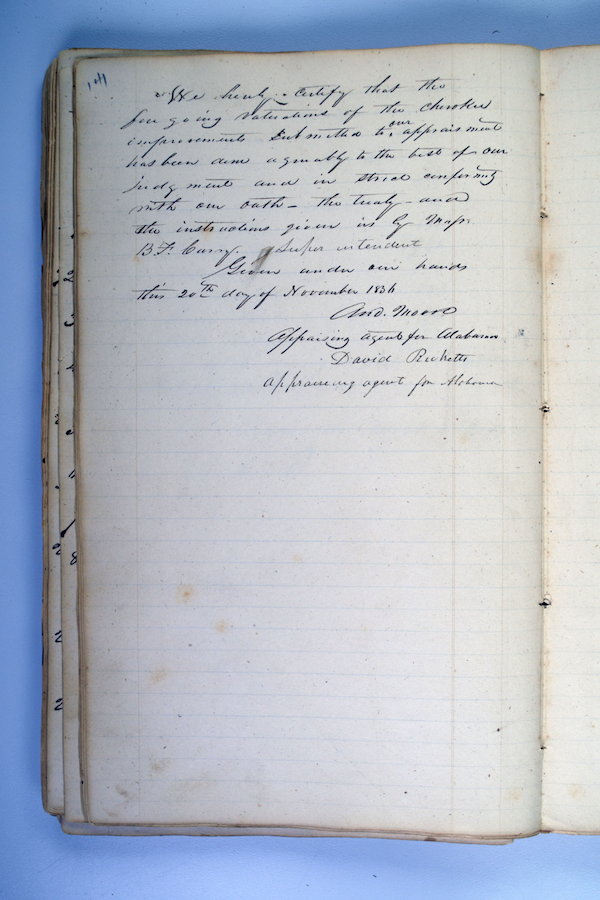 141
We hereby certify that the
fore going valuations of the Cherokee
improvements Submitted to our appraisment
has been done agreeably to the best of our
judgment and in strict conformity
with our oath - the treaty - and
the instructions given us by Majr.
B. F. Curry. Super intendent
Given under our hands
this 20th day of November 1836
And. Moore
Appraising Agent for Alabama
David Ricketts
appraising agent for Alabama